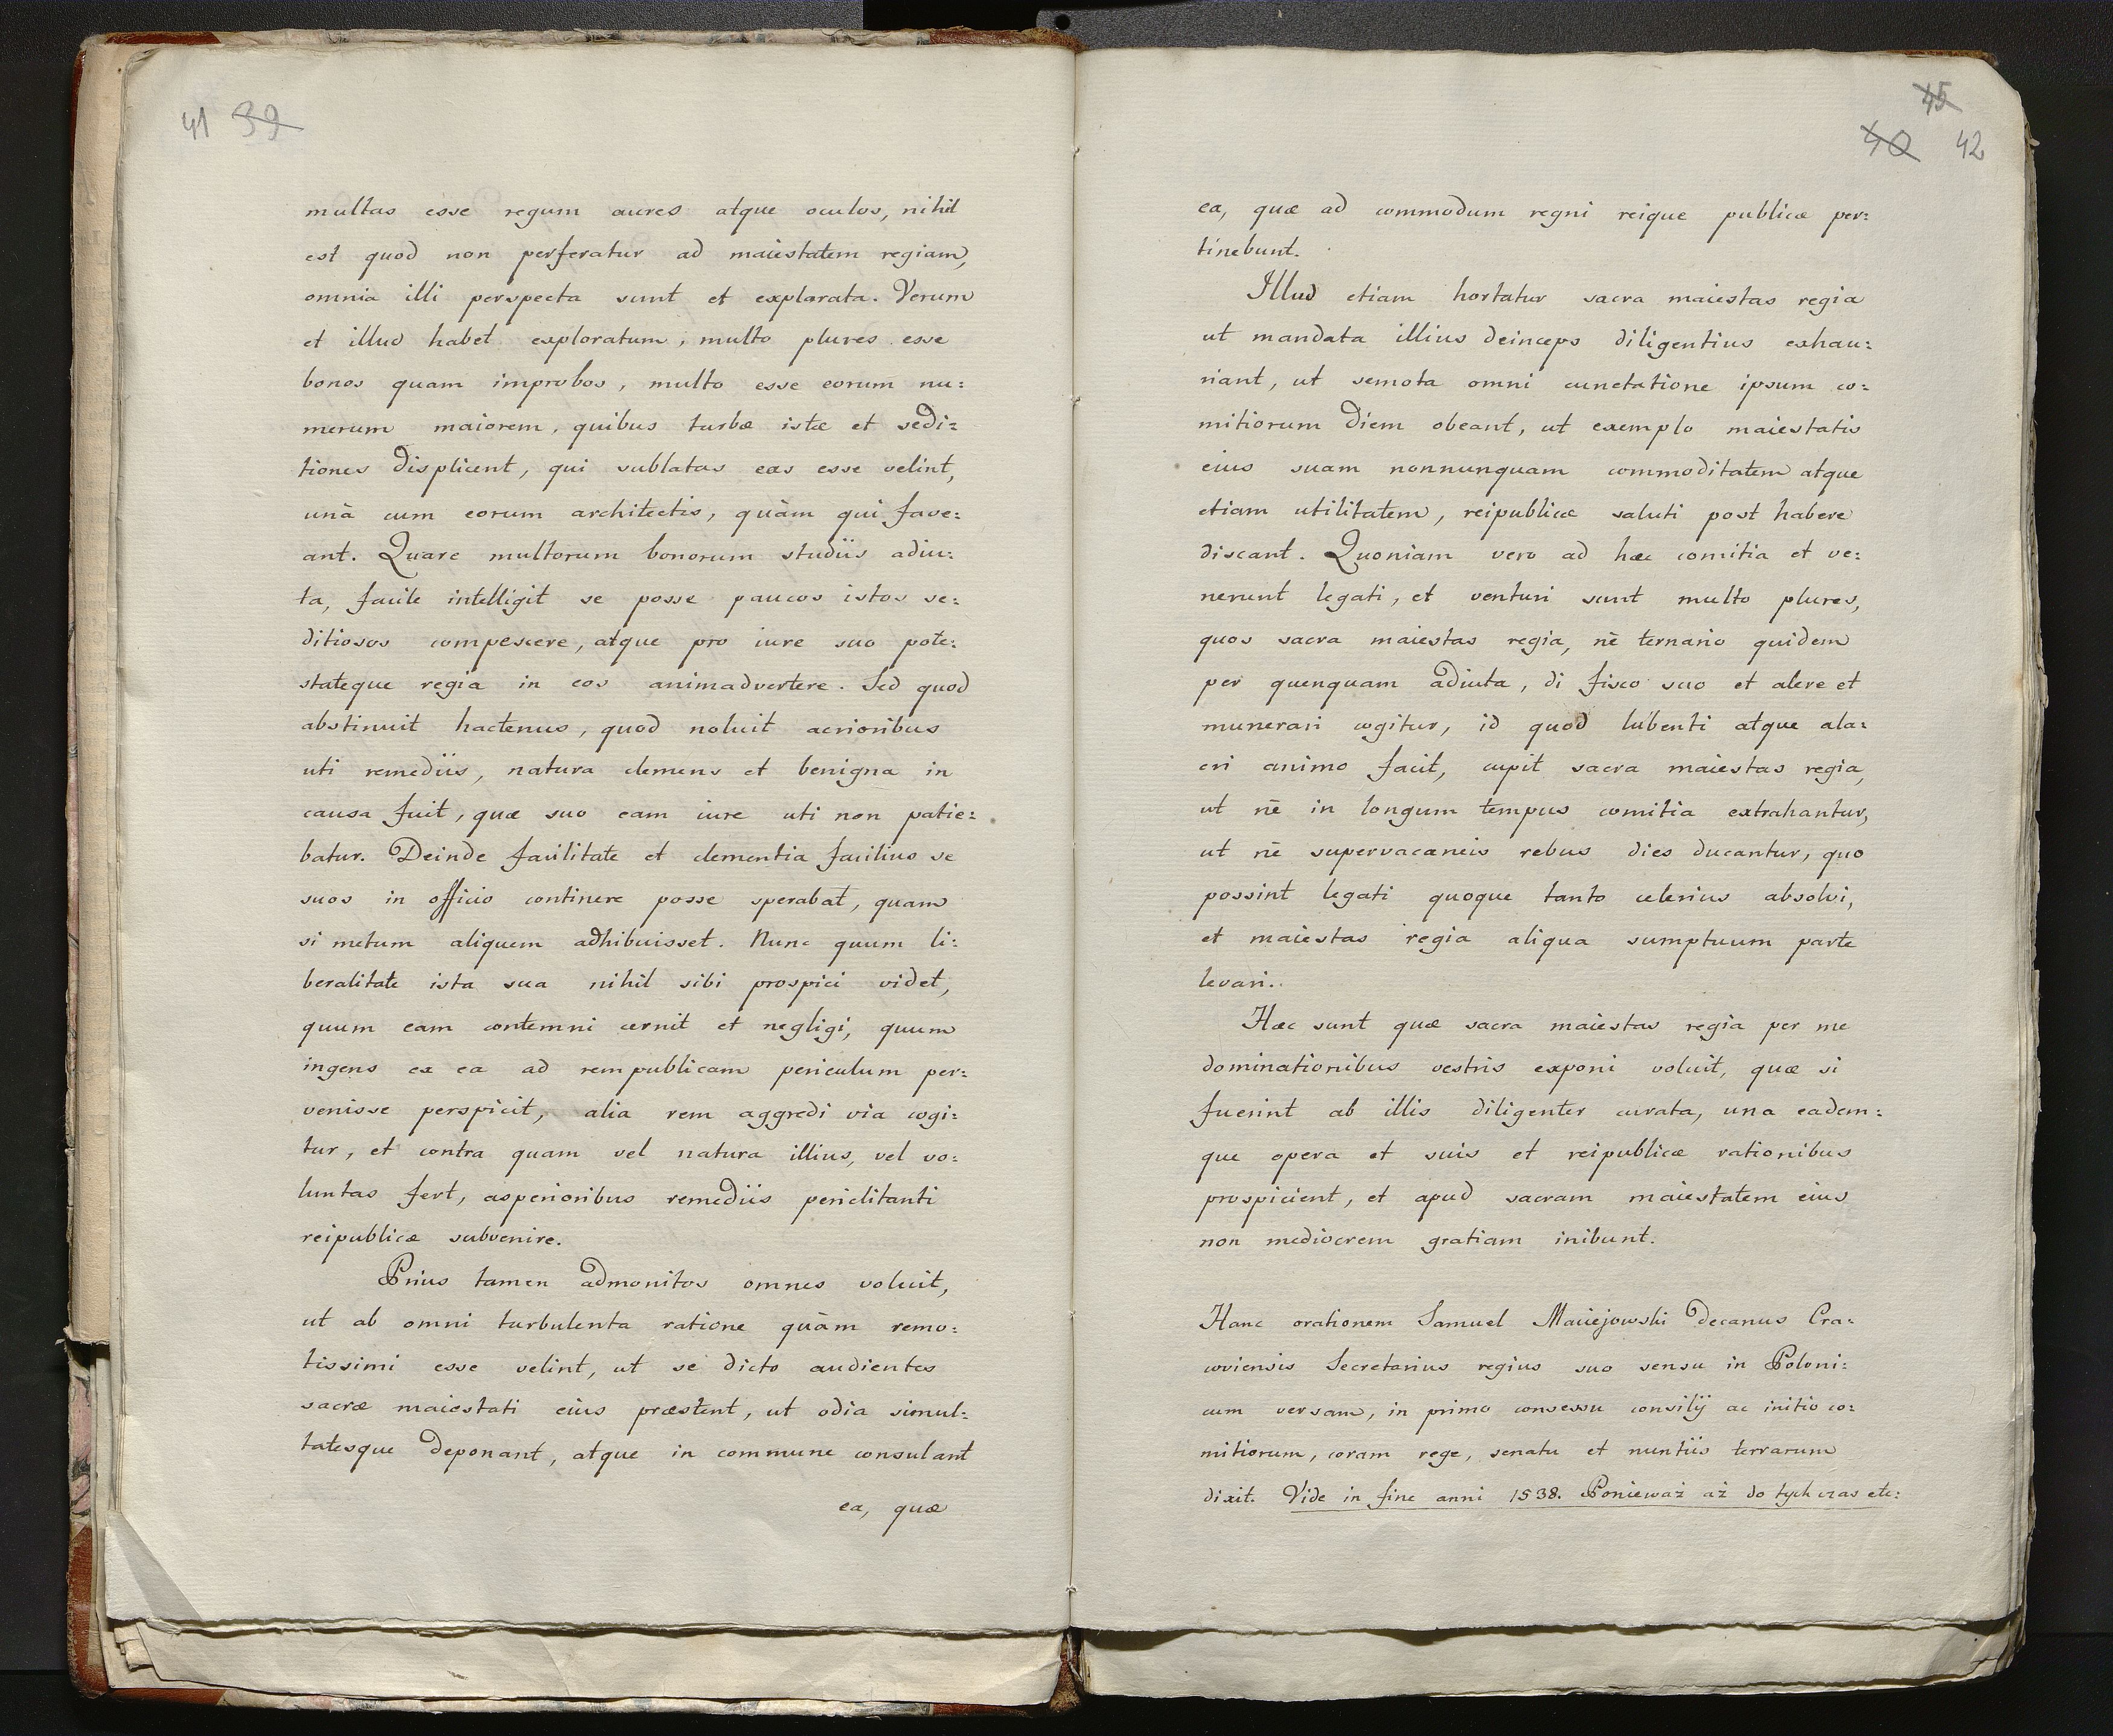 41 39
multas esse regum aures atque oculos, nihil
est quod non perferatur ad maiestatem regiam,
omnia illi perspecta sunt et explorata. Verum
et illud habet exploratum, multo plures esse
bonos quam improbos, multo esse eorum nu:
merum maiorem, quibus turbæ istæ et sedi:
tiones displicent, qui sublatas eas esse velint,
unà cum eorum architectis, quàm qui fave:
ant. Quare multorum bonorum studiis adiu:
ta, facile intelligit se posse paucos istos se:
ditiosos compescere, atque pro iure suo pote:
stateque regia in eos animadvertere. Sed quod
abstinuit hactenus, quod noluit acrioribus
uti remediis, natura clemens et benigna in
causa fuit, quæ suo eam iure uti non patie:
batur. Deinde facilitate et clementia facilius se
suos in officio continere posse sperabat, quam
si metum aliquem adhibuisset. Nunc quum li:
beralitate ista sua nihil sibi prospici videt,
quum eam contemni cernit et negligi, quum
ingens ex ea ad rempublicam periculum per:
venisse perspicit, alia rem aggredi via cogi:
tur, et contra quam vel natura illius, vel vo:
luntas fert, asperioribus remediis periclitanti
reipublicæ subvenire.
Prius tamen admonitos omnes voluit,
ut ab omni turbulenta ratione quàm remo:
tissimi esse velint, ut se dicto audientes
sacræ maiestati eius præstent, ut odia simul:
tatesque deponant, atque in commune consulant
ea, quæ
45
40 42
ea, quæ ad commodum regni reique publicæ per:
tinebunt.
Illud etiam hortatur sacra maiestas regia
ut mandata illius deinceps diligentius exhau:
riant, ut semota omni cunctatione ipsum co:
mitiorum diem obeant, ut exemplo maiestatis
eius suam nonnunquam commoditatem atque
etiam utilitatem, reipublicæ saluti post habere
discant. Quoniam vero ad hæc comitia et ve:
nerunt legati, et venturi sunt multo plures,
quos sacra maiestas regia, nè ternario quidem
per quenquam adiuta, di fisco suo et alere et
munerari cogitur, id quod lubenti atque ala:
cri animo facit, cupit sacra maiestas regia,
ut nè in longum tempus comitia extrahantur,
ut nè supervacaneis rebus dies ducantur, quo
possint legati quoque tanto celerius absolvi,
et maiestas regia aliqua sumptuum parte
levari.
Hæc sunt quæ sacra maiestas regia per me
dominationibus vestris exponi voluit, quæ si
fuerint ab illis diligenter curata, una eadem:
que opera et suis et reipublicæ rationibus
prospicient, et apud sacram maiestatem eius
non mediocrem gratiam inibunt.
Hanc orationem Samuel Maciejowski Decanus Cra:
coviensis Secretarius regius suo sensu in Poloni:
cum versam, in primo consessu consilij ac initio co:
mitiorum, coram rege, senatu et nuntiis terrarum
dixit. Vide in fine anni 1538. Ponieważ aż do tych czas etc: